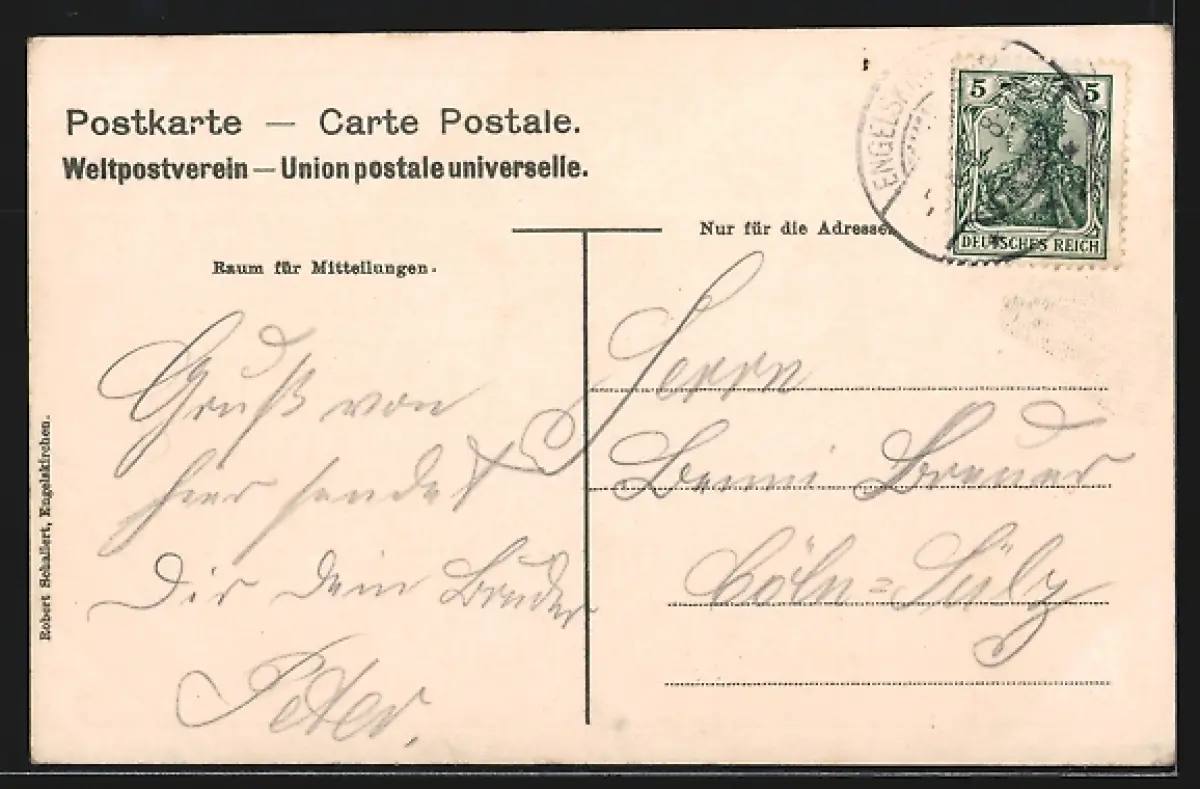 Postkarte — Carte Postale.
Weltpostverein — Union postale universelle.
Nur für die Adresse.
Raum für Mitteilungen.
Gruß von
hier sendet
Dir Dein Bruder
Peter.
Herrn
Benni Breuer
Cöln=Sülz
Robert Schallert, Engelskirchen.
5 5
DEUTSCHES REICH